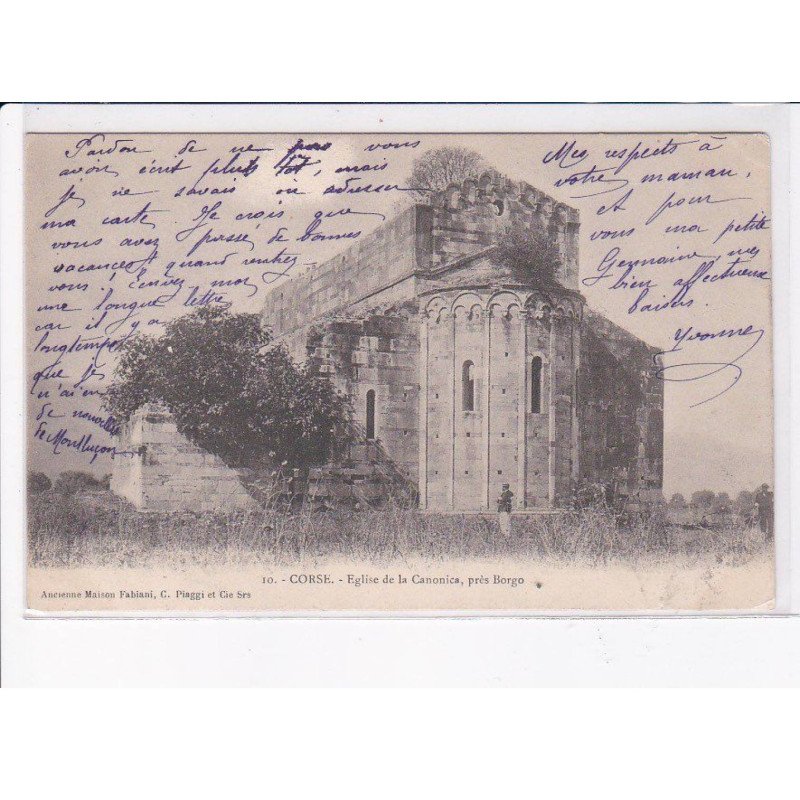 Pardon de ne pas vous
avoir écrit plus tôt, mais
je ne savais où adresser
ma carte. Je crois que
vous avez passé de bonnes
vacances & quand rentrez
vous ? écrivez moi
une longue lettre
car il y a
longtemps
que je
n'ai eu
de nouvelles
de Montluçon
Mes respects à
votre maman,
et pour
vous ma petite
Germaine, mes
bien affectueux
baisers.
Yvonne
10. - CORSE. - Eglise de la Canonica, près Borgo
Ancienne Maison Fabiani, C. Piaggi et Cie Srs